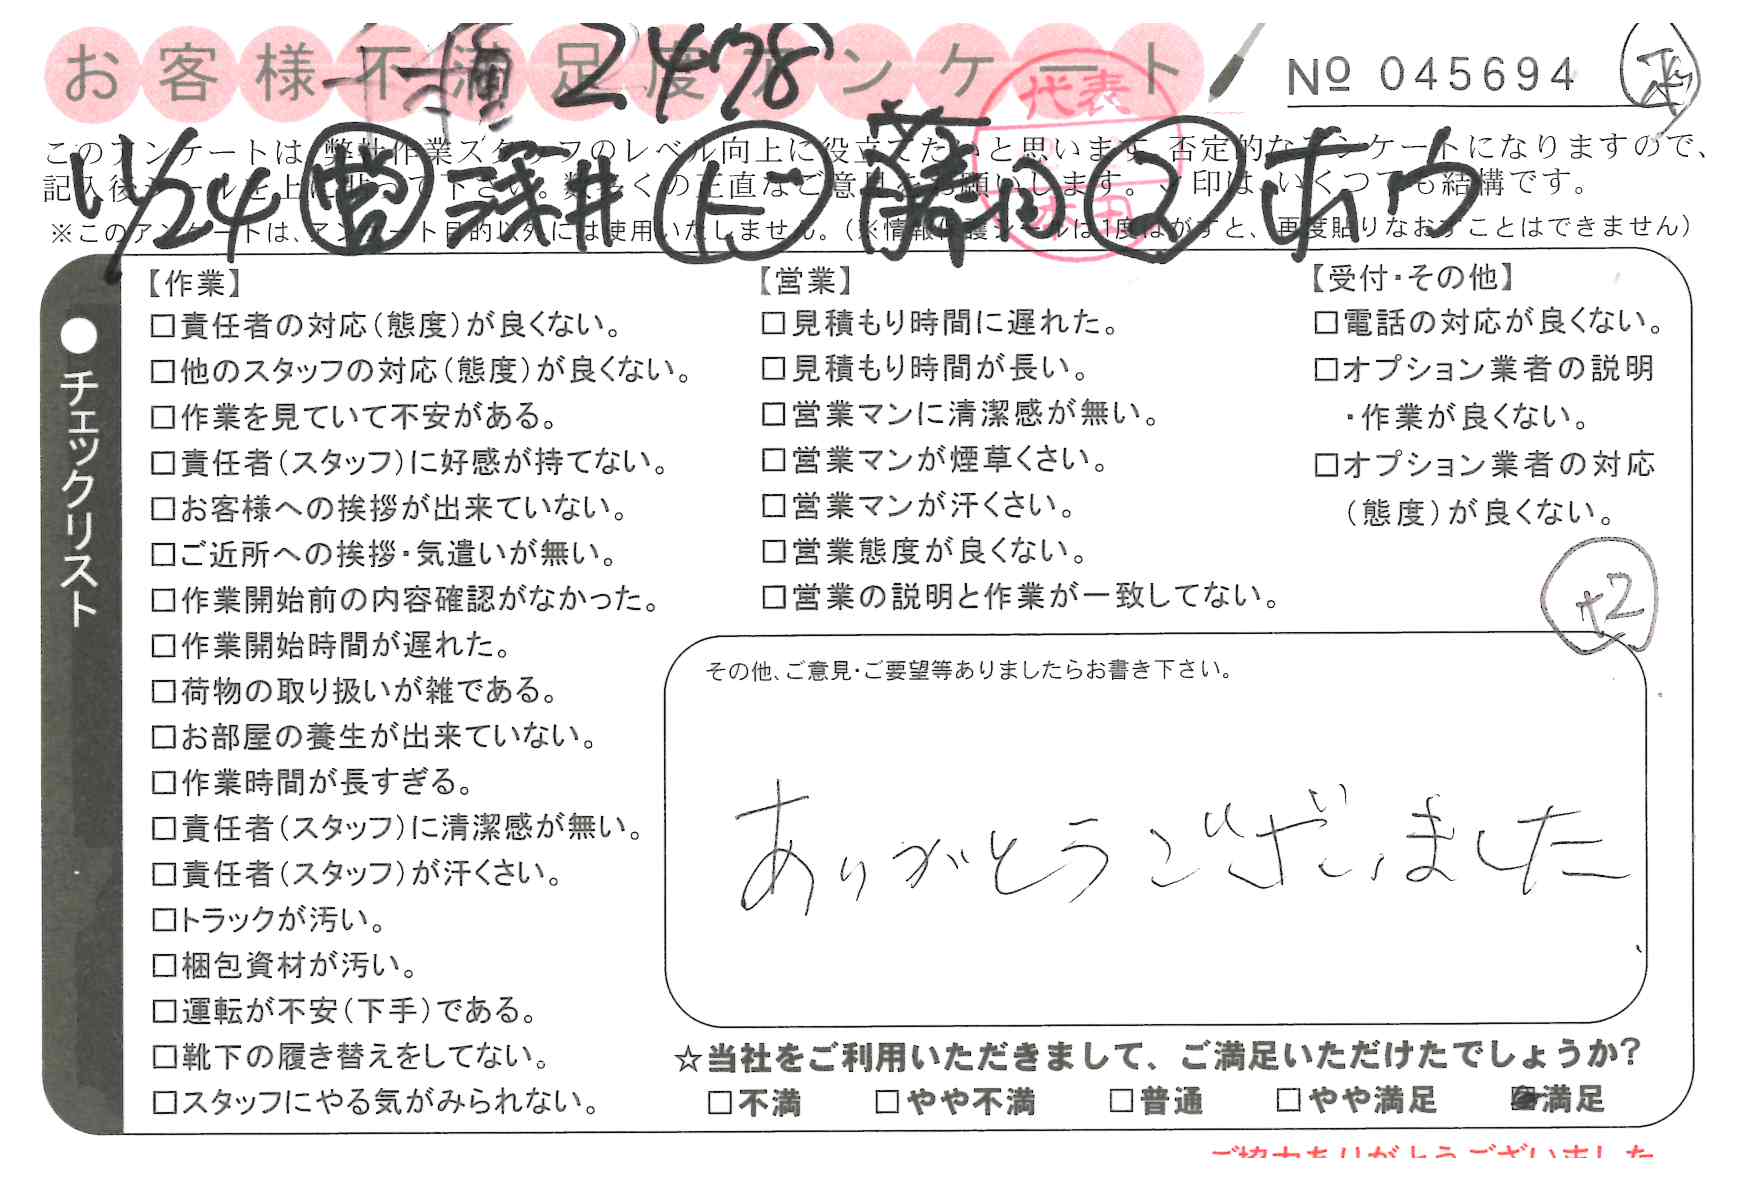 お客様不満足度アンケート
2478
No 045694
このアンケートは、弊社作業スタッフのレベル向上に役立てたいと思います。否定的なアンケートになりますので、
記入後シールを上に貼って下さい。数多くの正直なご意見をお願いします。✓印は、いくつでも結構です。
※このアンケートは、アンケート目的以外には使用いたしません。(※情報保護シールは1度はがすと、再度貼りなおすことはできません)
代表
11/24 営 深井 ト 蒲田 2 ホウ
●チェックリスト
【作業】
□責任者の対応(態度)が良くない。
□他のスタッフの対応(態度)が良くない。
□作業を見ていて不安がある。
□責任者(スタッフ)に好感が持てない。
□お客様への挨拶が出来ていない。
□ご近所への挨拶・気遣いが無い。
□作業開始前の内容確認がなかった。
□作業開始時間が遅れた。
□荷物の取り扱いが雑である。
□お部屋の養生が出来ていない。
□作業時間が長すぎる。
□責任者(スタッフ)に清潔感が無い。
□責任者(スタッフ)が汗くさい。
□トラックが汚い。
□梱包資材が汚い。
□運転が不安(下手)である。
□靴下の履き替えをしてない。
□スタッフにやる気がみられない。
【営業】
□見積もり時間に遅れた。
□見積もり時間が長い。
□営業マンに清潔感が無い。
□営業マンが煙草くさい。
□営業マンが汗くさい。
□営業態度が良くない。
□営業の説明と作業が一致してない。
【受付・その他】
□電話の対応が良くない。
□オプション業者の説明
・作業が良くない。
□オプション業者の対応
(態度)が良くない。
+2
その他、ご意見・ご要望等ありましたらお書き下さい。
ありがとうございました
☆当社をご利用いただきまして、ご満足いただけたでしょうか?
□不満 □やや不満 □普通 □やや満足 ■満足
ご協力ありがとうございました